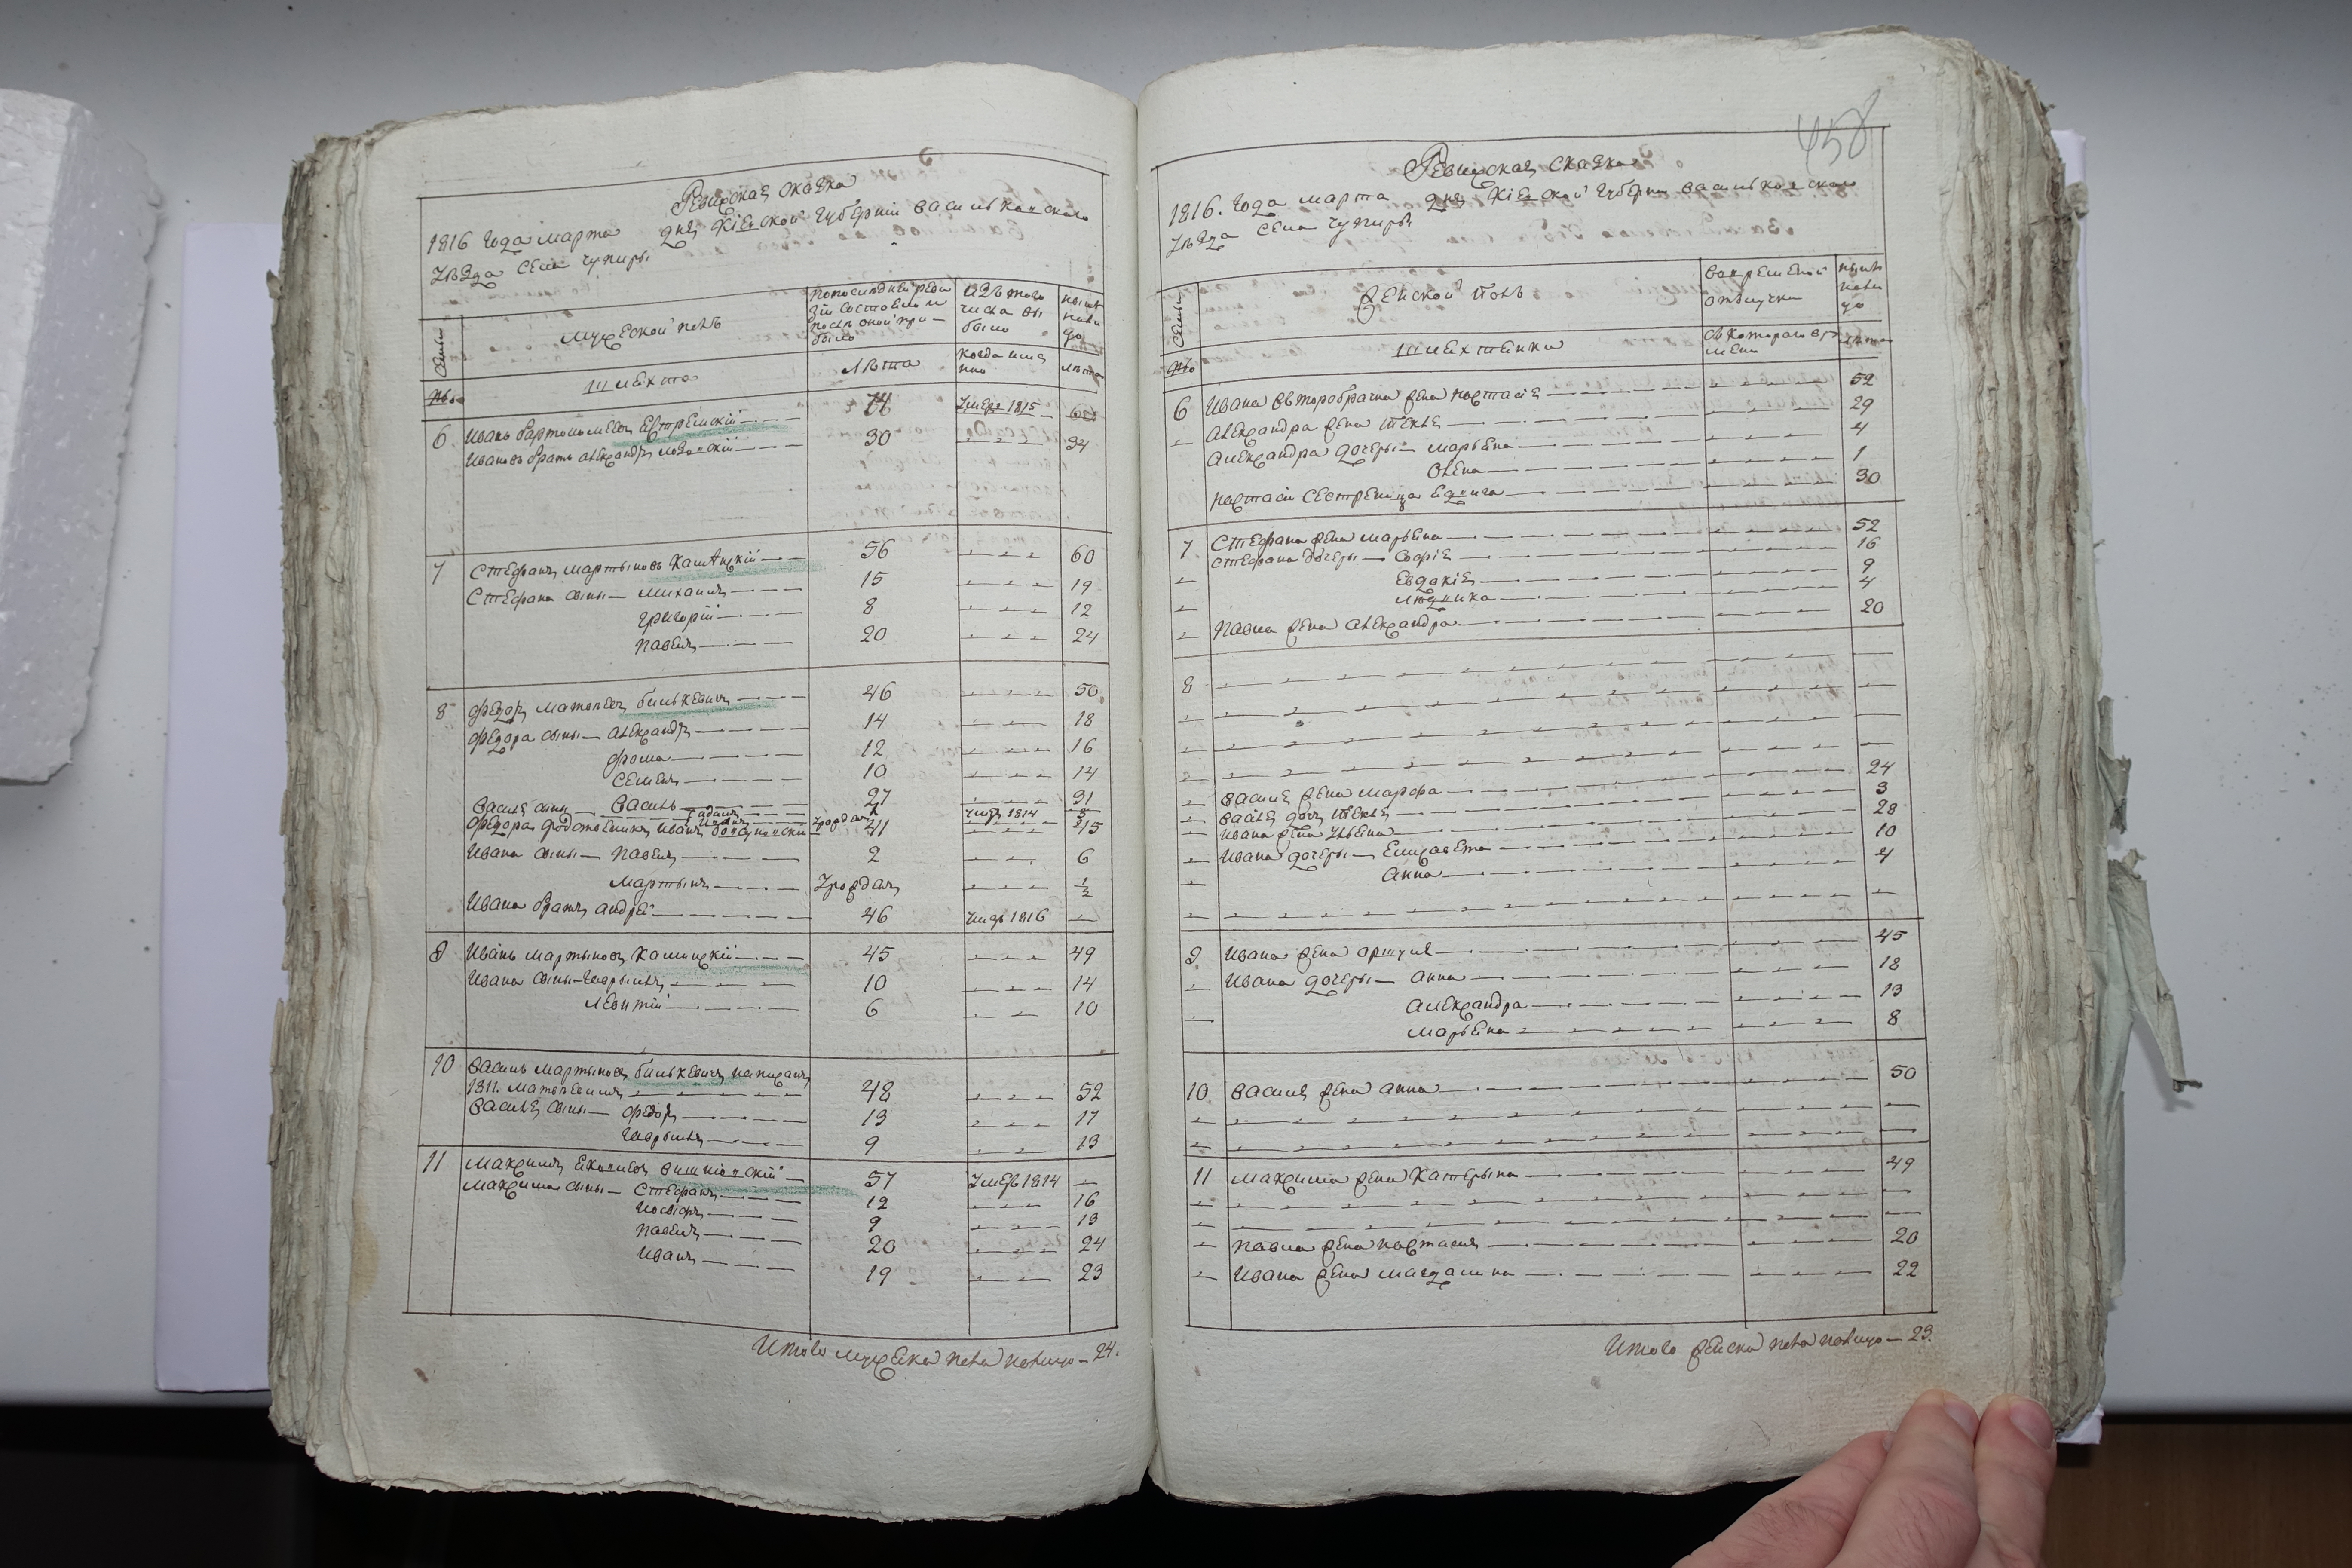 458
Ревизская сказка
1816 Года марта дня Кіевской Губерніи Васильковского
Уезда Села Чупиры
Семьи
Мужеской полъ
По последней реви
зіи состояло и
после оной при
было
Изъ того
числа вы
было
ныне
нали
цо
№
Шляхта
Лета
когда имян
но
Лета
6 Иванъ Бартоломеевъ 74 Умеръ 1815
Ивановъ братъ Александръ 30 34
7 Стефанъ Мартыновъ 56 60
Стефана сыны Михаилъ 15 19
Григорій 8 12
Павелъ 20 24
8 Федоръ Матвеевъ Билькевичъ 46 50
Федора сыны Александръ 14 18
Фома 12 16
Семенъ 10 14
Василь 27 31
Умеръ 1814
Федора Иванъ 41 45
Ивана сыны Павелъ 2 6
Мартынъ Урожданъ 1/2
Ивана братъ Андрей 46 Умеръ 1816
9 Иванъ Мартыновъ Каминскій 45 49
Ивана сыны Гаврыилъ 10 14
Леонтій 6 10
10 Василь Мартыновъ Билькевичъ написанъ
1811 Матвеевимъ 48 52
Василя сыны Федоръ 13 17
Гаврыилъ 9 13
11 Максимъ Вишніовскій 57 Умеръ 1814
Максима сыны Стефанъ 12 16
Иосифъ 9 13
Павелъ 20 24
Иванъ 19 23
Итого мужеска пола налицо 24.
Ревизская сказка
1816. Года марта дня Кіевской Губерніи Васильковского
Уезда Села Чупиры
Семьи
Женской Полъ
Во временной
отлучки
ныне
нали
цо
№
Шляхтянки
Съ которого вре
мени
Лета
6 Ивана второбрачна жена Настасія 52
Александра жена Текля 29
Александра дочеры Марьяна 4
Олена 1
Настасіи 30
7 Стефана жена Марьяна 52
Стефана дочеры Софія 16
Евдокія 9
4
Павла жена Александра 20
8
Василя жена Марфа 24
Василя дочь Текля 3
Ивана жена Ульяна 28
Ивана дочеры Елизавета 10
Анна 4
9 Ивана жена 45
Ивана дочеры Анна 18
Александра 13
Марьяна 8
10 Василя жена Анна 50
11 Максима жена Катерына 49
Павла жена Настасия 20
Ивана жена Магдалина 22
Итого женска пола налицо 23.